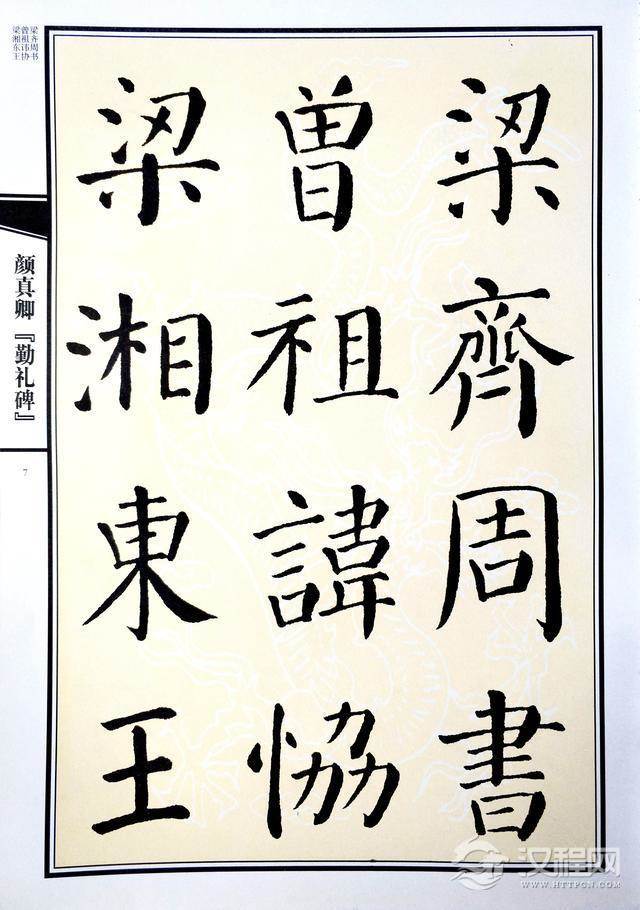 梁齊周書
曽祖諱恊
梁湘東王
梁齐周书
曾祖讳协
梁湘东王
颜真卿『勤礼碑』
7
汉程网
WWW.HTTPCN.COM